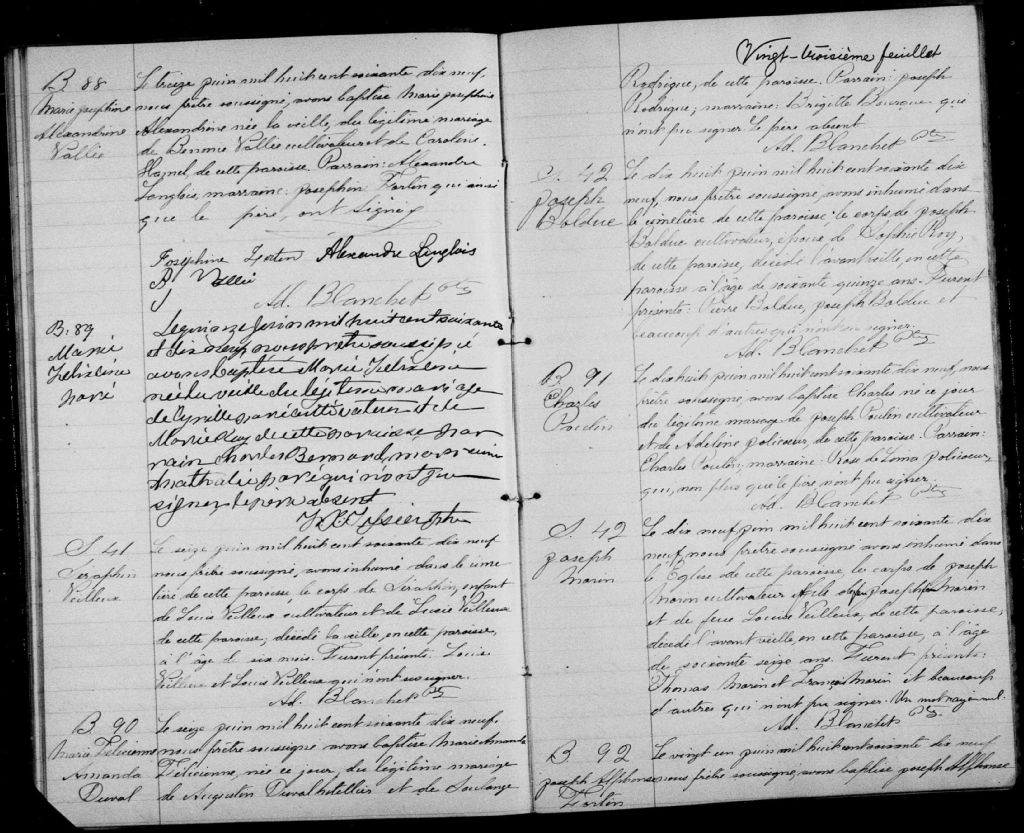 B 88
Marie Josephine
Alexandrine
Vallée
Le treize juin mil huit cent soixante dix neuf,
nous prêtre soussigné, avons baptisé Marie Josephine
Alexandrine née la veille, du légitime mariage
de Benonie Vallée cultivateur et de Caroline
Hamel de cette paroisse. Parrain: Alexandre
Langlois, marraine: Josephine Fortin qui ainsi
que le père, ont signé
Josephine Fortin Alexandre Langlois
B Vallée
Ad. Blanchet Ptre
B. 89
Marie
Félixine
Paré
Le quinze Juin mil huit cent soixante
et dix neuf nous prêtre soussigné
avons baptisé Marie
née la veille du légitime mariage
de Cyrille Paré cultivateur et de
Marie Roy de cette paroisse par
rain Charles Bernard, marraine
Mathalie Paré qui n'ont pu
signer le père absent
ptre
S. 41
Seraphin
Veilleux
Le seize juin mil huit cent soixante dix neuf
nous prêtre soussigné, avons inhumé dans le cime
tière de cette paroisse, le corps de Séraphin, enfant
de Louis Veilleux cultivateur et de Lucie Veilleux
de cette paroisse, décédé la veille, en cette paroisse,
à l'âge de six mois. Furent présents: Louis
Veilleux et Louis Veilleux qui n'ont su signer.
Ad. Blanchet Ptre
B 90
Marie Félicienne
Amanda
Duval
Le seize juin mil huit cent soixante dix neuf,
nous prêtre soussigné avons baptisé Marie Amanda
Félicienne, née ce jour, du légitime mariage
de Augustin Duval hotellier et de Soulange
Vingt-troisième feuillet
Rodrigue, de cette paroisse. Parrain: Joseph
Rodrigue, marraine: Brigitte Bourque qui
n'ont pu signer. Le père absent
Ad. Blanchet Ptre
S. 42
Joseph
Bolduc
Le dix huit juin mil huit cent soixante dix
neuf, nous prêtre soussigné, avons inhumé dans
le cimetière de cette paroisse, le corps de Joseph
Bolduc cultivateur, époux de Sophie Roy,
de cette paroisse, décédé l'avant veille, en cette
paroisse à l'âge de soixante quinze ans. Furent
présents: Pierre Bolduc, Joseph Bolduc et
beaucoup d'autres qui n'ont su signer.
Ad. Blanchet Ptre
B. 91
Charles
Poulin
Le dix huit juin mil huit cent soixante dix neuf, nous
prêtre soussigné, avons baptisé Charles né ce jour
du légitime mariage de Joseph Poulin cultivateur
et de Adeline Policoeur, de cette paroisse. Parrain:
Charles Poulin, marraine: Rose de Lima Policoeur,
qui, non plus que le père n'ont pu signer.
Ad. Blanchet Ptre
S. 42
Joseph
Morin
Le dix neuf juin mil huit cent soixante dix
neuf, nous prêtre soussigné avons inhumé dans
l'Eglise de cette paroisse, le corps de Joseph
Morin cultivateur fils de feu Joseph Morin
et de feue Louise Veilleux, de cette paroisse,
décédé l'avant veille, en cette paroisse, à l'âge
de soixante seize ans. Furent présents:
Thomas Morin et François Morin et beaucoup
d'autres qui n'ont pu signer. Un mot rayé nul.
Ad. Blanchet Ptre
B 92
Joseph Alphonse
Fortin
Le vingt un juin mil huit cent soixante dix neuf
nous prêtre soussigné, avons baptisé Joseph Alphonse